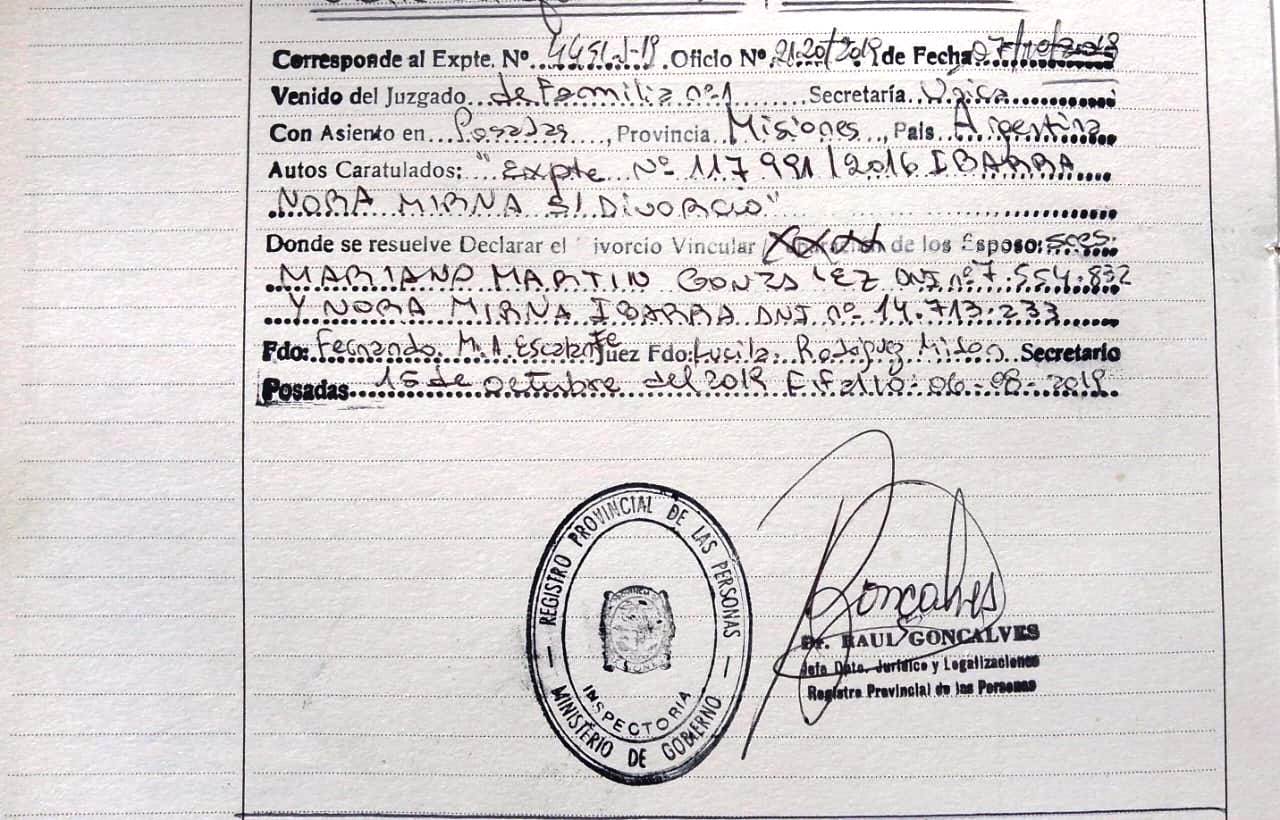 Corresponde al Expte. Nº 4451-J-19 Oficio Nº 2120/2019 de Fecha 07/10/2019
Venido del Juzgado de Familia nº 1 Secretaría Única
Con Asiento en Posadas, Provincia Misiones, País Argentina
Autos Caratulados: "Expte Nº 117991/2016 IBARRA
NORA MIRNA S/ DIVORCIO"
Donde se resuelve Declarar el ivorcio Vincular de los Esposo: sres:
MARIANO MARTIN GONZALEZ DNI nº 7.554.832
Y NORA MIRNA IBARRA DNI nº 14.713.233
Fdo: Fernando M.A. Escalante Juez Fdo: Lucila Rodriguez Secretario
Posadas 15 de octubre del 2019 06-08-2019
REGISTRO PROVINCIAL DE LAS PERSONAS
INSPECTORIA
MINISTERIO DE GOBIERNO
Goncalves
Dr. RAUL GONCALVES
Jefe Dpto. Jurídico y Legalizaciones
Registro Provincial de las Personas